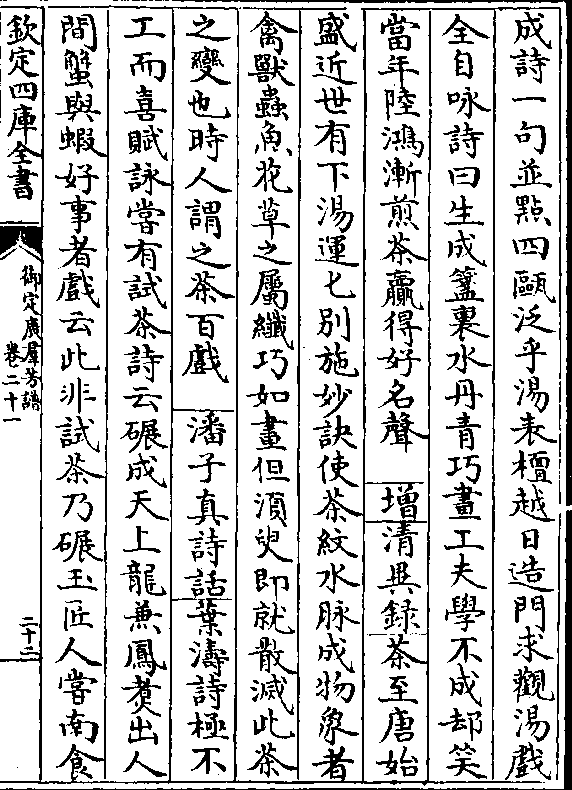 成詩一句並㸃四甌泛乎湯表檀越日造門求觀湯戲
全自咏詩曰生成盞裏水丹青巧畫工夫學不成却笑
當年陸鴻漸煎茶贏得好名聲　增清異錄茶至唐始
盛近世有下湯運匕别施妙訣使茶紋水脉成物象者
禽獸蟲魚花草之屬纖巧如畫但須臾即就散滅此茶
之變也時人謂之茶百戲　潘子真詩話葉濤詩極不
工而喜賦詠嘗有試茶詩云碾成天上龍兼鳳煑出人
間蟹與蝦好事者戲云此非試茶乃碾玉匠人嘗南食
欽定四庫全書
御定廣羣芳譜
卷二十一
二十二